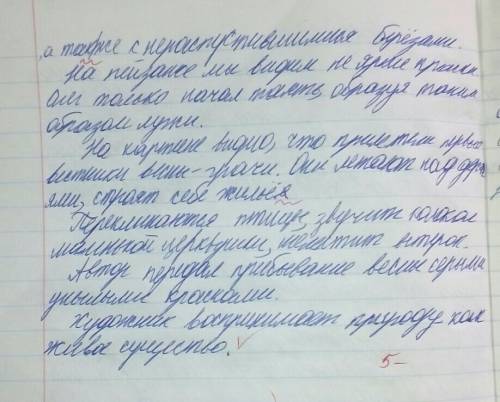 а также с нераспустившимися берёзами.
На пейзаже мы видим не яркие краски.
снег только начал таять, образуя таким
образом лужи.
На картине видно, что прилетели первые
вестники весны-грачи. Они летают над дере
ями, строят себе жильё
Перекликаются птицы, звучит колокол
маленькой церквушки, шелестит ветерок.
Автор передал прибывание весны серыми
унылыми красками.
Художник воспринимает природу как
живое существо.
5-